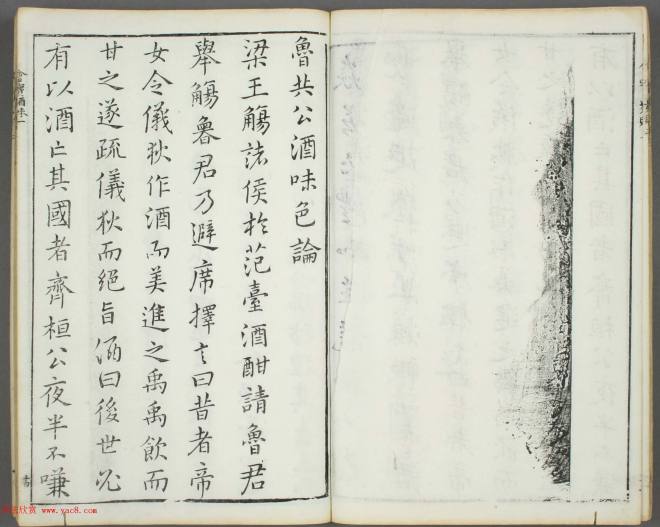 魯共公酒味色論
梁王觴諸侯於范臺酒酣請魯君
舉觴魯君乃避席擇言曰昔者帝
女令儀狄作酒而美進之禹禹飲而
甘之遂疏儀狄而絕旨酒曰後世必
有以酒亡其國者齊桓公夜半不嗛
www.yac8.com